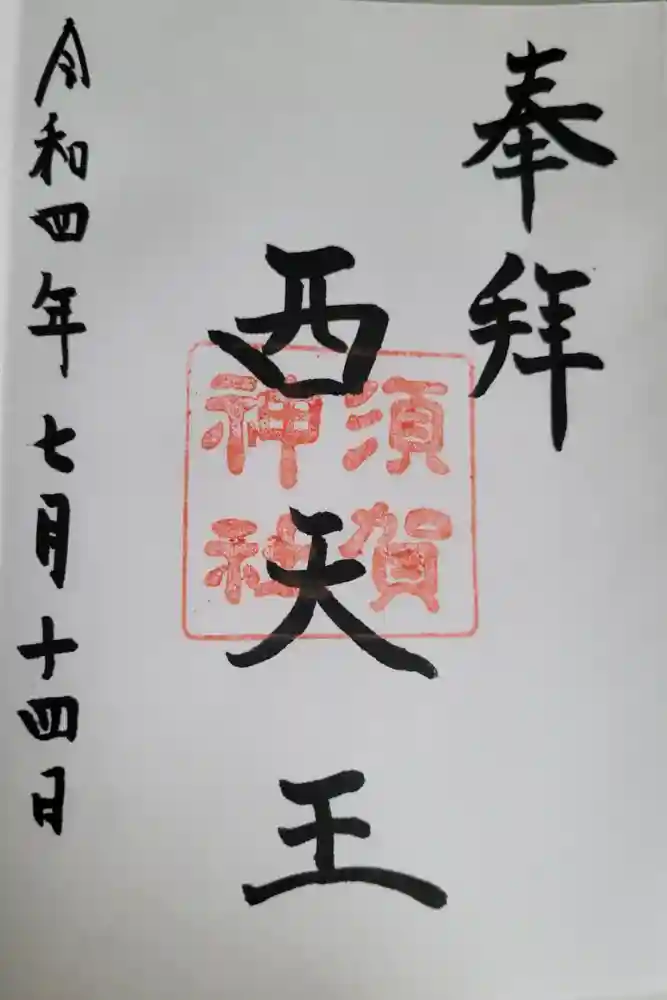 奉拜
西天王
須賀
神社
令和四年七月十四日